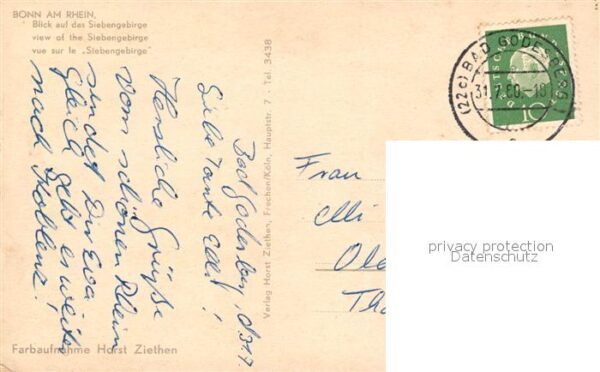 BONN AM RHEIN,
Blick auf das Siebengebirge
view of the Siebengebirge
vue sur le „Siebengebirge"
Bad Godesberg, d. 31.7.
Liebe Tante Elli!
Herzliche Grüße
vom schönen Rhein
sendet Dir Eva
Gleich geht es weiter
nach Koblenz!
Verlag Horst Ziethen, Frechen/Köln, Hauptstr. 7 · Tel. 3438
Farbaufnahme Horst Ziethen
Frau
Elli
(22c) BAD GODESBERG 1
31.7.60.-18
DEUTSCHE BUNDESPOST
10
privacy protection
Datenschutz